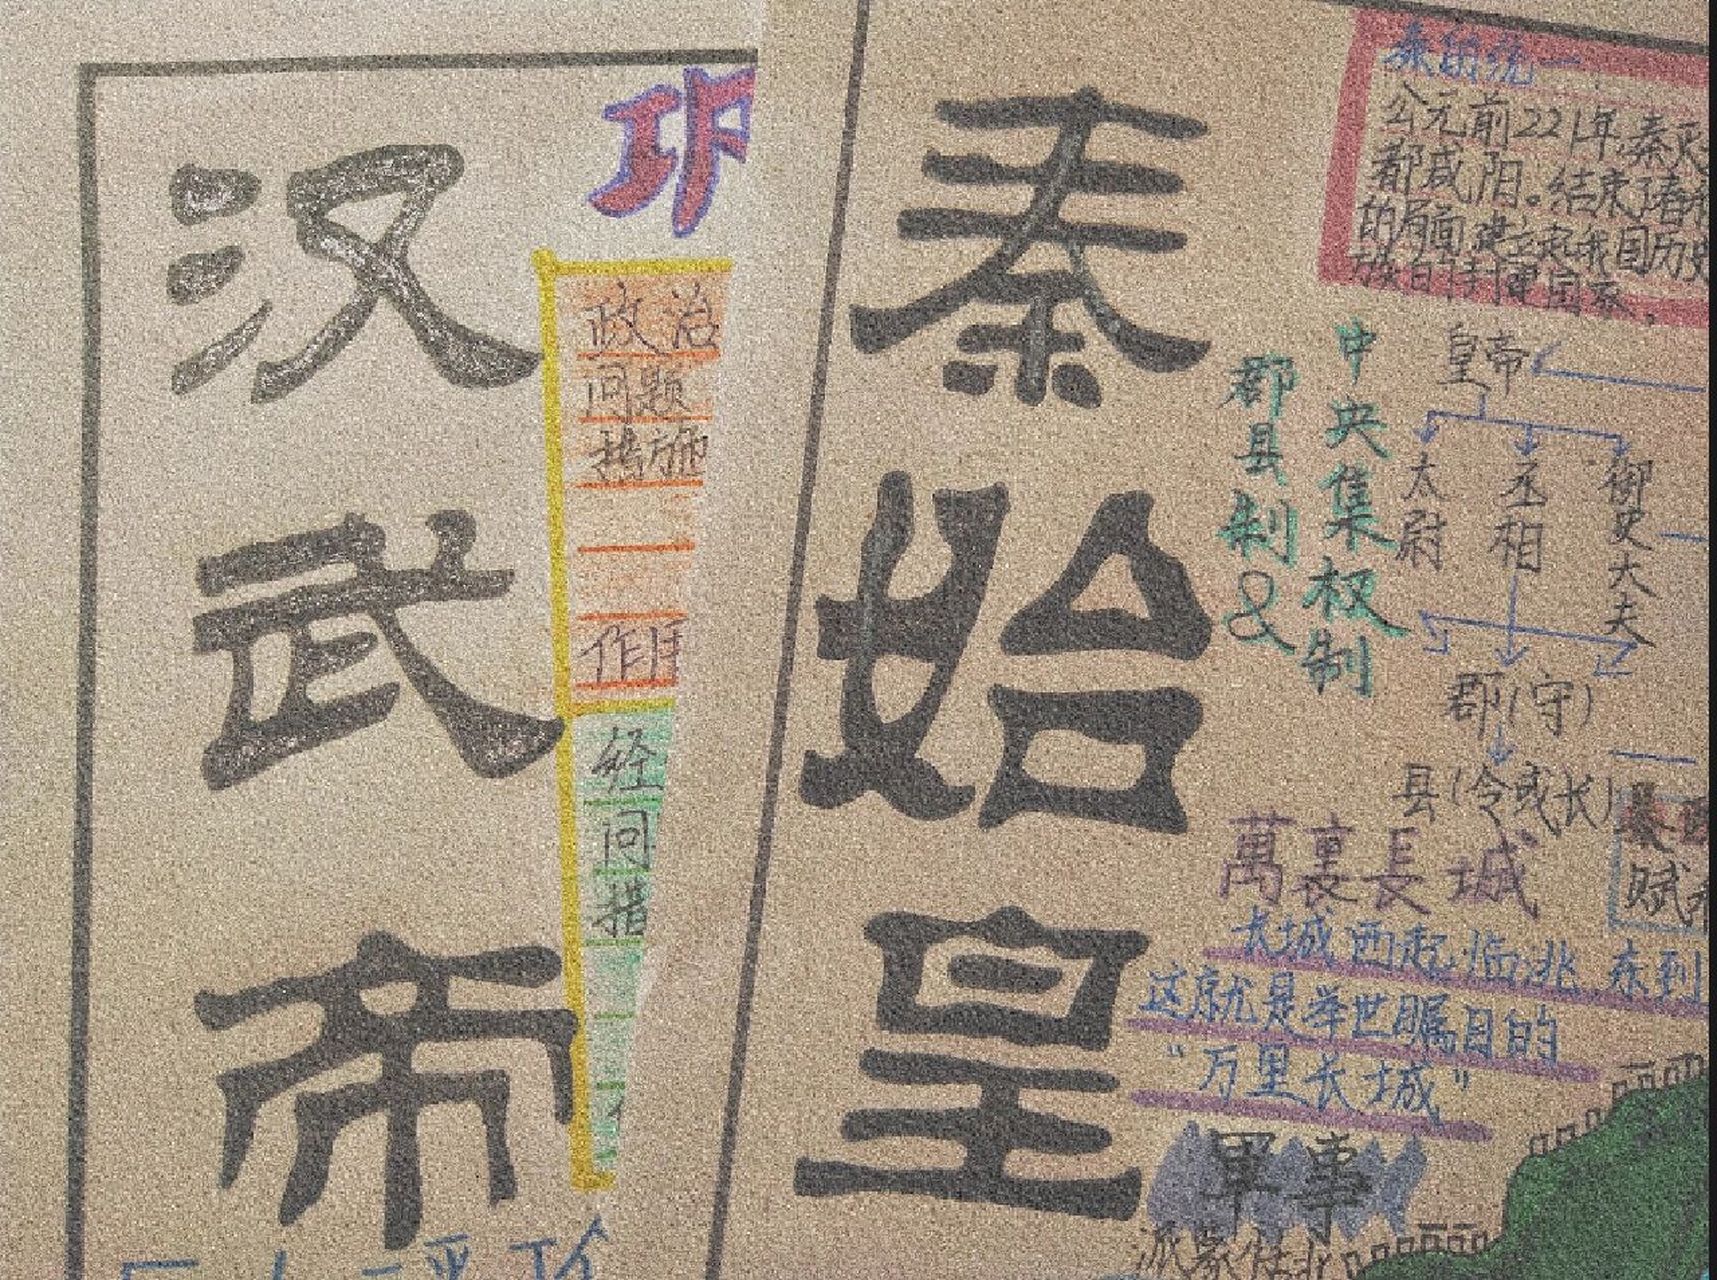 汉武帝
功
政治
问题
措施
作用
经
问
措
秦始皇
秦的统一
公元前221年,秦灭
都咸阳。结束了春秋
的局面,建立起我国历史
中央集权制
郡县制&
皇帝
太尉
丞相
御史大夫
郡(守)
县(令或长)
萬裏長城
长城西起临洮 东到
这就是举世瞩目的
"万里长城"
军事
派蒙恬北
赋